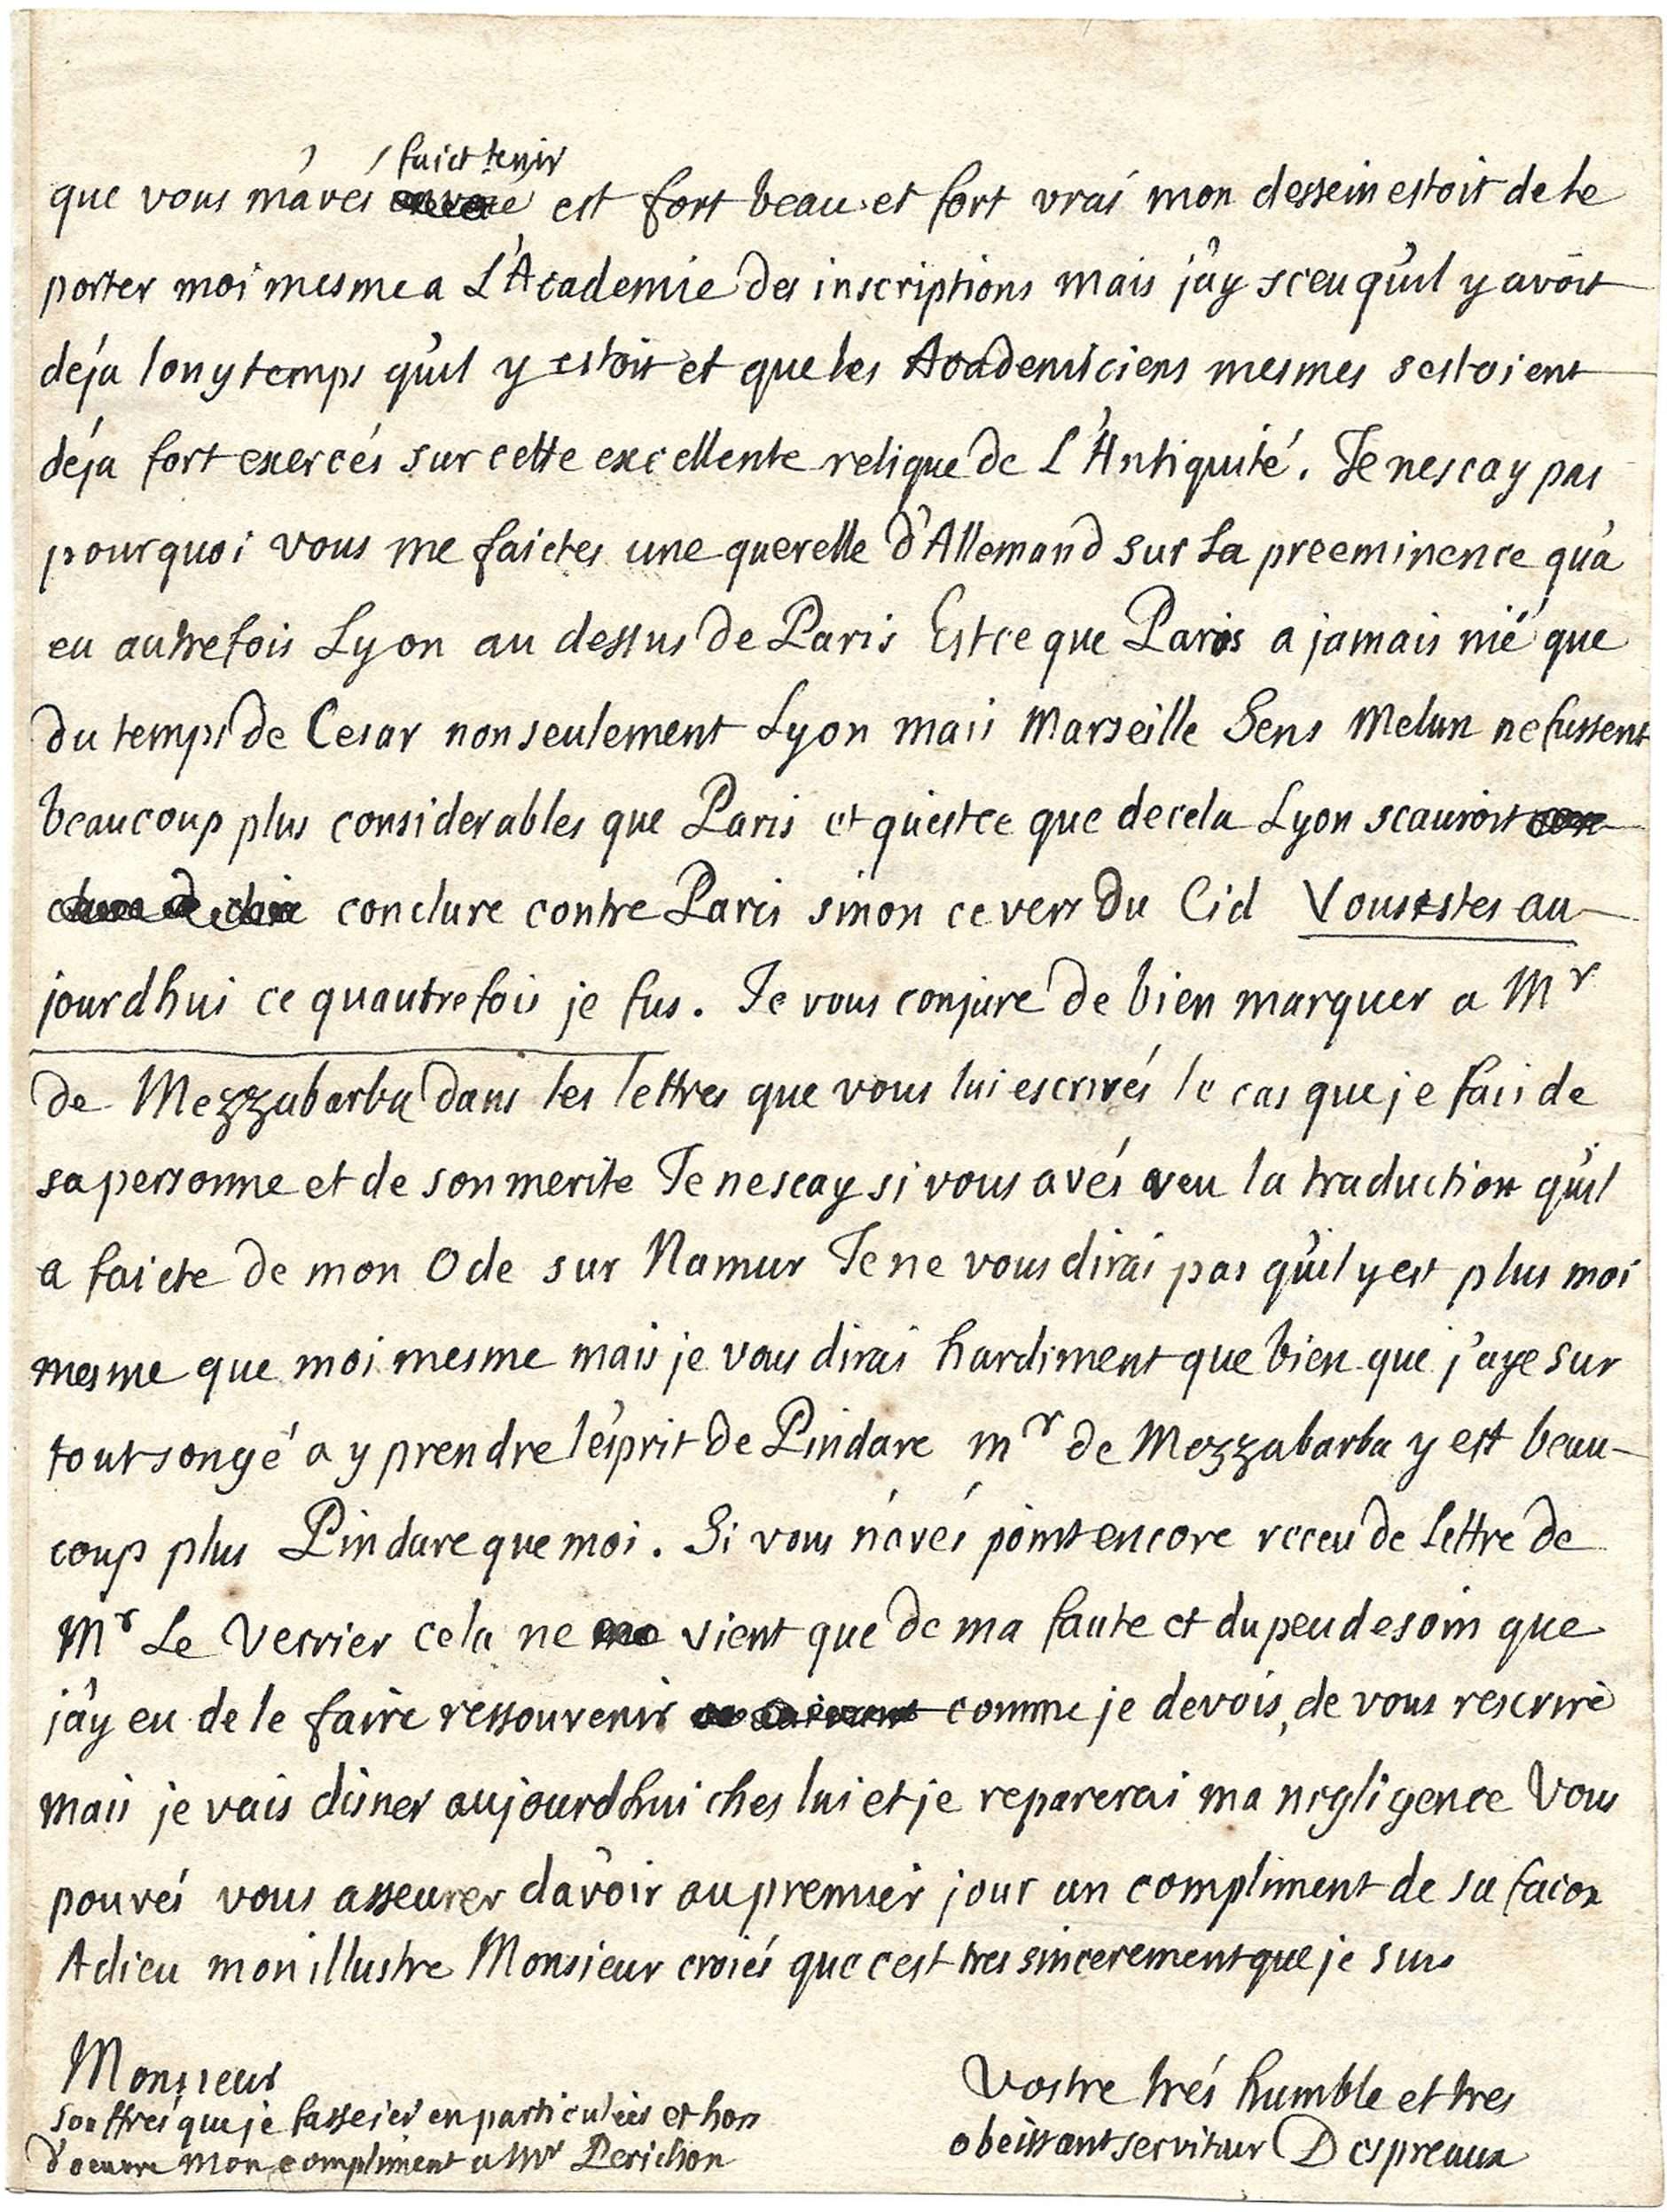 faict tenir
que vous m'avés est fort beau et fort vrai mon dessein estoit de le
porter moi mesme a L'Academie des inscriptions mais j'ay sceu qu'il y avoit
déja longtemps qu'il y estoit et que les Academiciens mesmes sestoient
déja fort exercés sur cette excellente relique de L'Antiquité. Je nescay pas
pourquoi vous me faictes une querelle d'Allemand sur La preeminence qu'a
eu autrefois Lyon au dessus de Paris Estce que Paris a jamais nié que
du temps de Cesar non seulement Lyon mais Marseille Sens Melun ne fussent
beaucoup plus considerables que Paris et qu'estce que de cela Lyon scauroit
conclure contre Paris sinon ce vers du Cid Vous estes au-
jourdhui ce quautrefois je fus. Je vous conjure de bien marquer a Mr
de Mezzabarba dans les lettres que vous lui escrivés le cas que je fais de
sa personne et de son merite Je nescay si vous avés veu la traduction qu'il
a faicte de mon Ode sur Namur Je ne vous dirai pas qu'il y est plus moi
mesme que moi mesme mais je vous dirai hardiment que bien que j'aye sur
tout songé a y prendre l'esprit de Pindare mr de Mezzabarba y est beau-
coup plus Pindare que moi. Si vous n'avés point encore receu de Lettre de
Mr Le Verrier cela ne vient que de ma faute et du peu de soin que
j'ay eu de le faire ressouvenir comme je devois, de vous rescrire
mais je vais disner aujourdhui ches lui et je reparerai ma negligence Vous
pouvés vous asseurer d'avoir au premier jour un compliment de sa facon
Adieu mon illustre Monsieur croiés que cest tres sincerement que je suis
Monsieur
Souffrés que je fasse ici en particulier et hors
d'oeuvre mon compliment a Mr Perichon
Vostre trés humble et tres
obeissant serviteur Despreaux